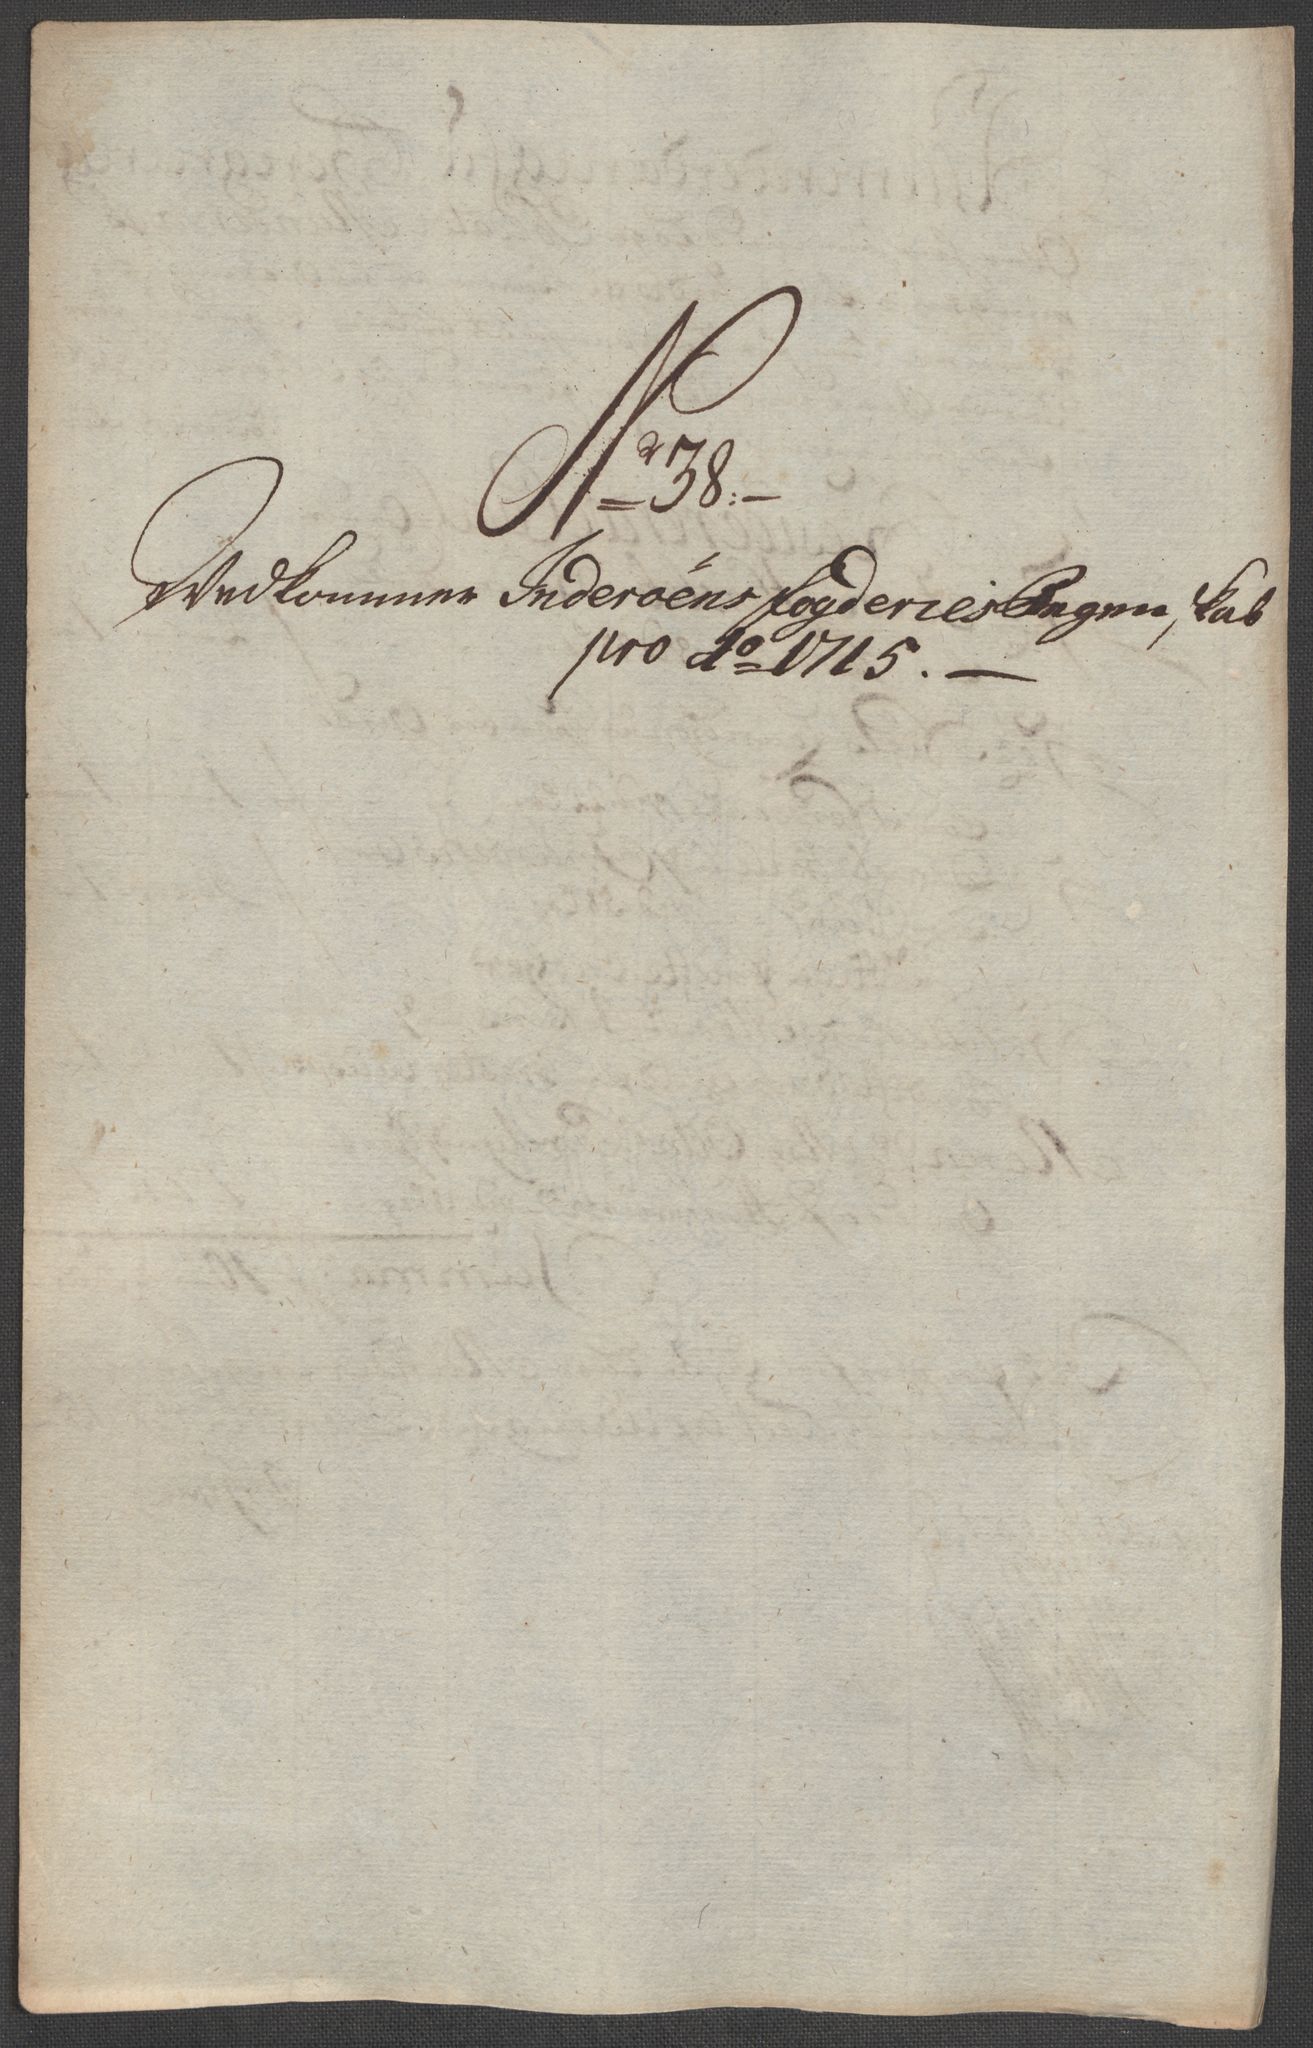 Nr 38:-
Vedkommer Inderøens fogderies Regen,skab
pro Ao 1715. —